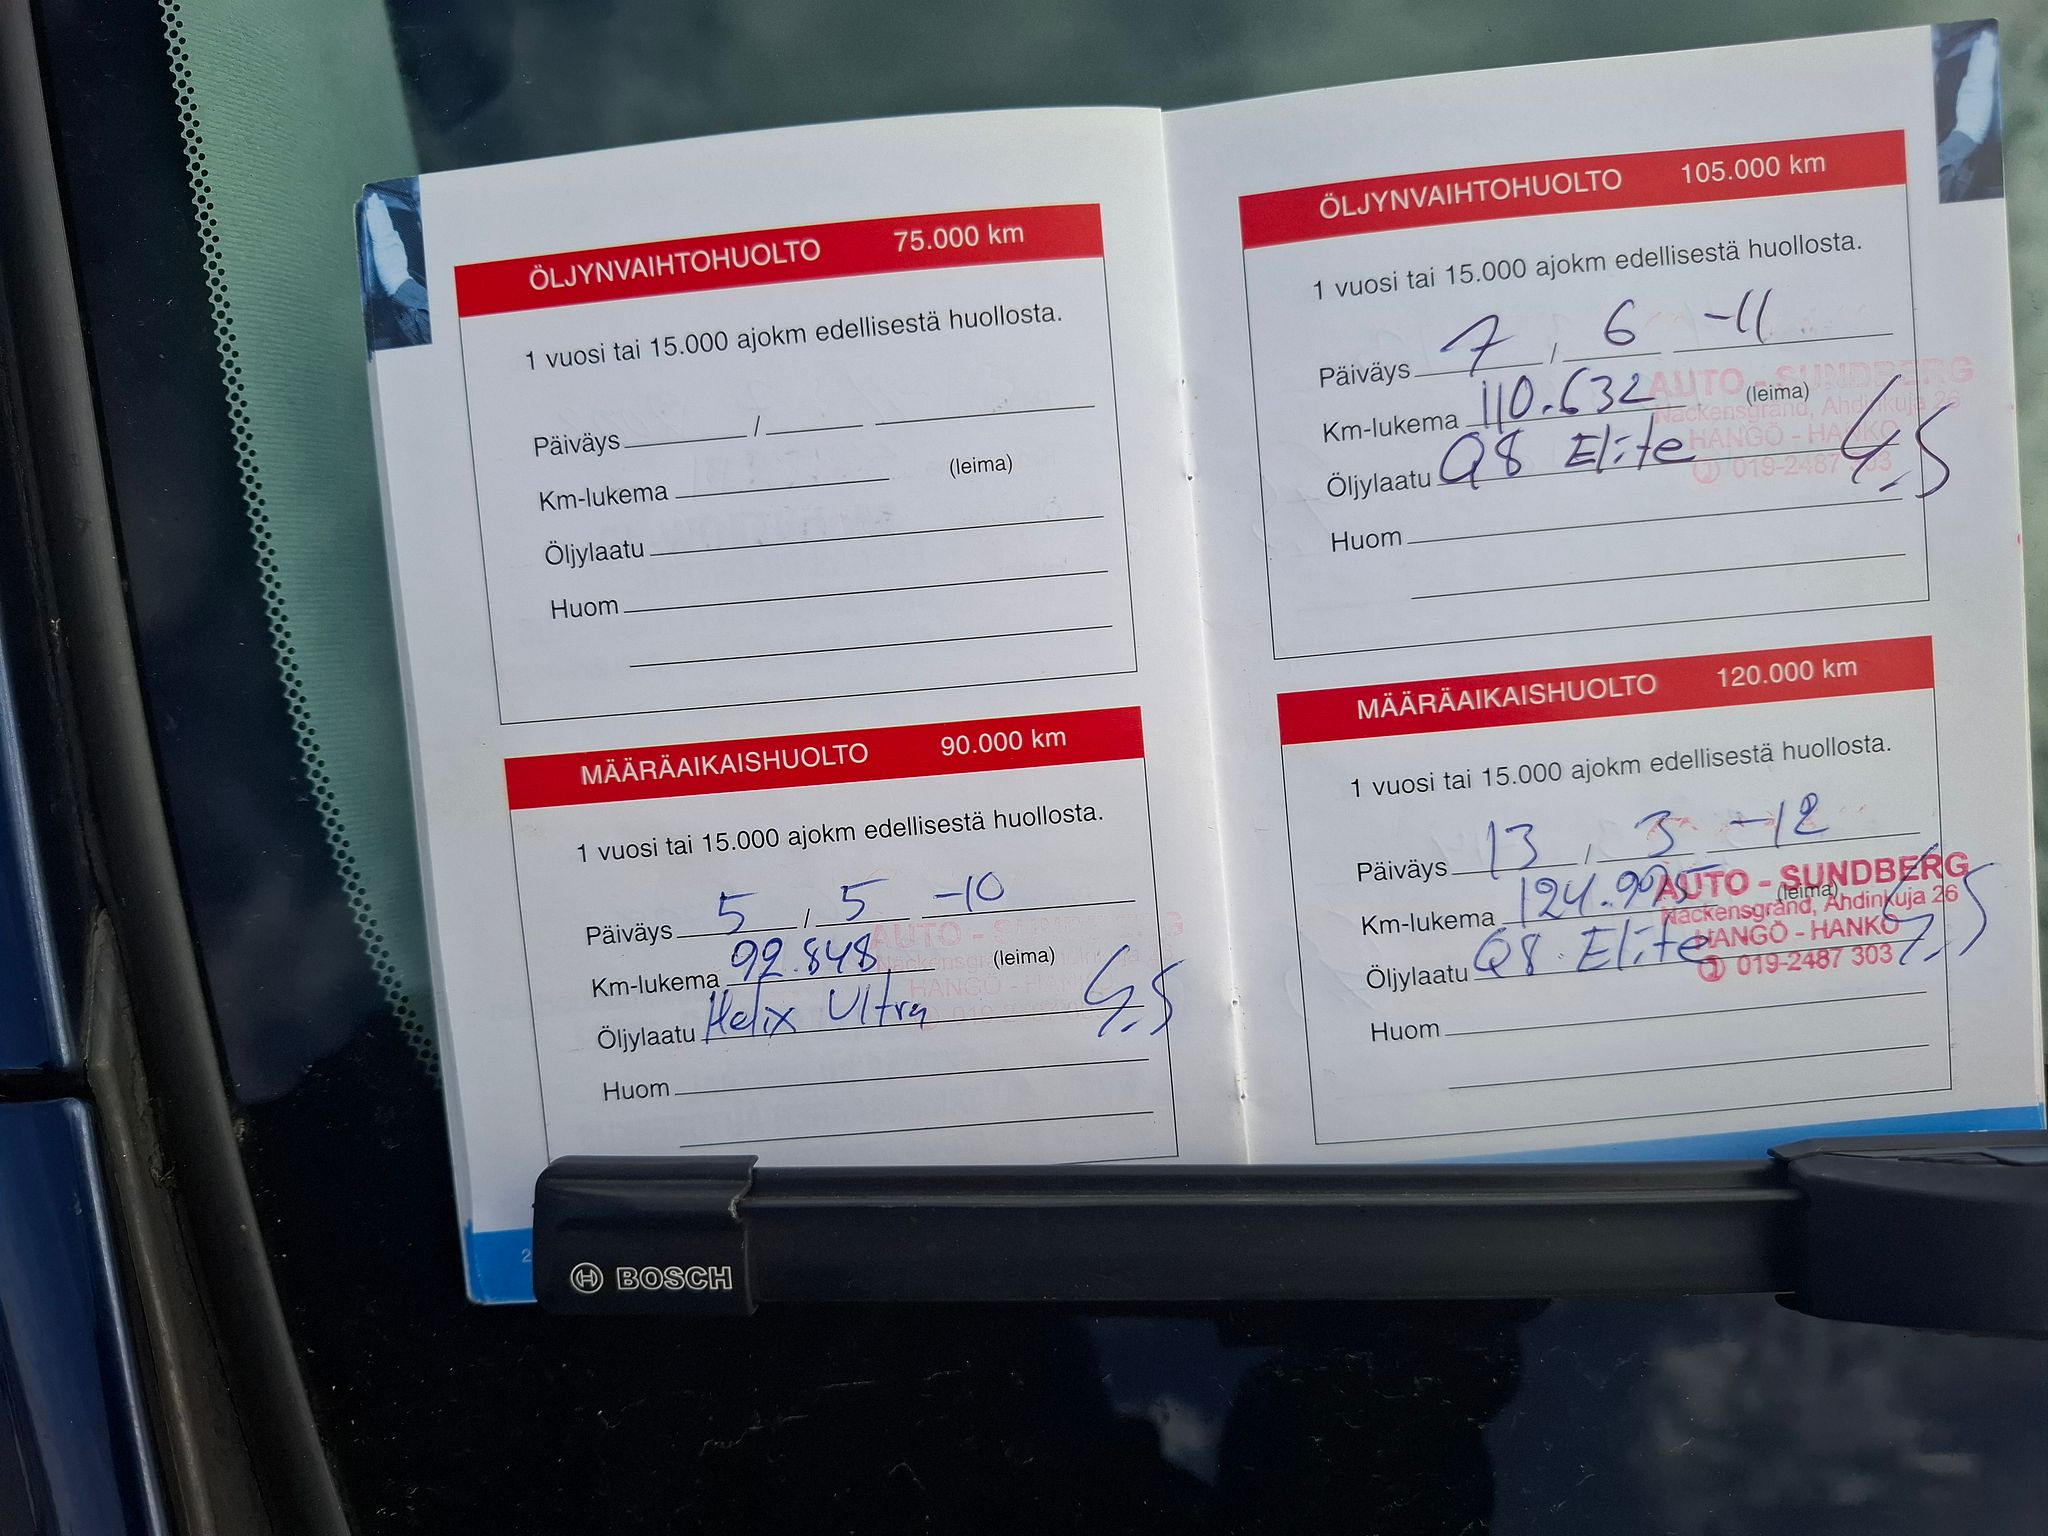 ÖLJYNVAIHTOHUOLTO 75.000 km
1 vuosi tai 15.000 ajokm edellisestä huollosta.
Päiväys / 
(leima)
Km-lukema
Öljylaatu
Huom
MÄÄRÄAIKAISHUOLTO 90.000 km
1 vuosi tai 15.000 ajokm edellisestä huollosta.
Päiväys 5 / 5 -10
Km-lukema 92.848 (leima)
Öljylaatu Helix Ultra
Huom
AUTO - SUNDBERG
HANGÖ - HANKO
2
ÖLJYNVAIHTOHUOLTO 105.000 km
1 vuosi tai 15.000 ajokm edellisestä huollosta.
Päiväys 7 / 6 -11
Km-lukema 110.632 (leima)
Öljylaatu Q8 Elite
Huom
AUTO - SUNDBERG
Nackensgränd, Ahdinkuja 26
HANGÖ - HANKO
019-2487 303
MÄÄRÄAIKAISHUOLTO 120.000 km
1 vuosi tai 15.000 ajokm edellisestä huollosta.
Päiväys 13 / 3 -12
Km-lukema 124.995 (leima)
Öljylaatu Q8 Elite
Huom
AUTO - SUNDBERG
Nackensgränd, Ahdinkuja 26
HANGÖ - HANKO
019-2487 303
BOSCH